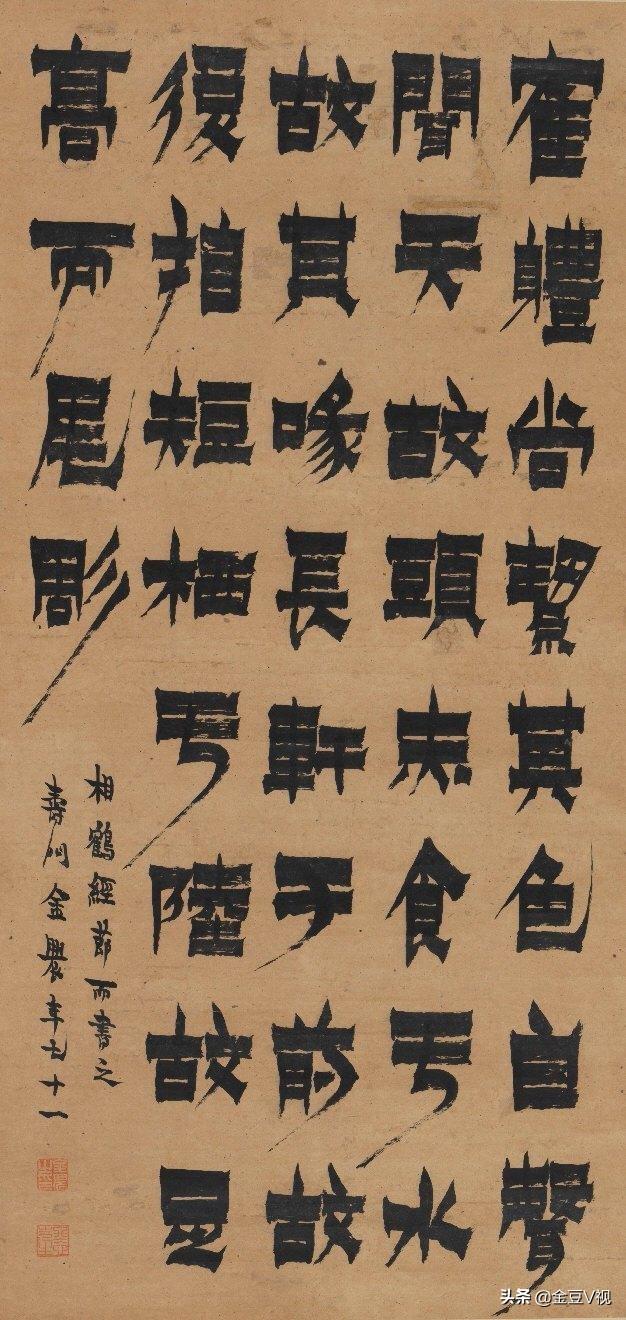 隺軆尚絜其色白聲
聞天故頭赤食亏水
故其喙長軒于前故
後指短栖亏陸故足
高而尾彫
相鶴經節而書之
壽門金農年七十一
头条 @金豆V视